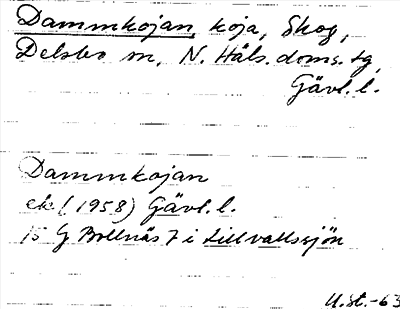 Dammkojan, koja, Skog,
Delsbo sn, N. Häls. doms. tg,
Gävl. l.
Dammkojan
ek (1958) Gävl. l.
15 G Bollnäs 7 i Lillvallssjön
U.St.-63